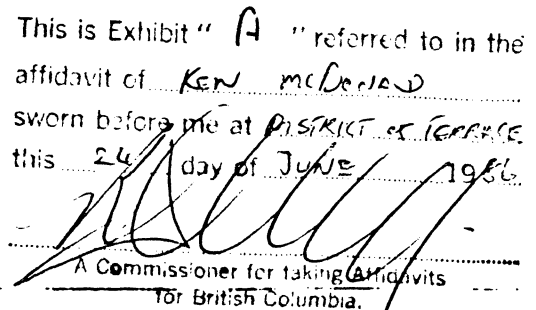 This is Exhibit “ A ” referred to in the
affidavit of KEN McDONALD
sworn before me at DISTRICT OF TERRACE
this 24 day of JUNE 1986
A Commissioner for taking Affidavits
for British Columbia.